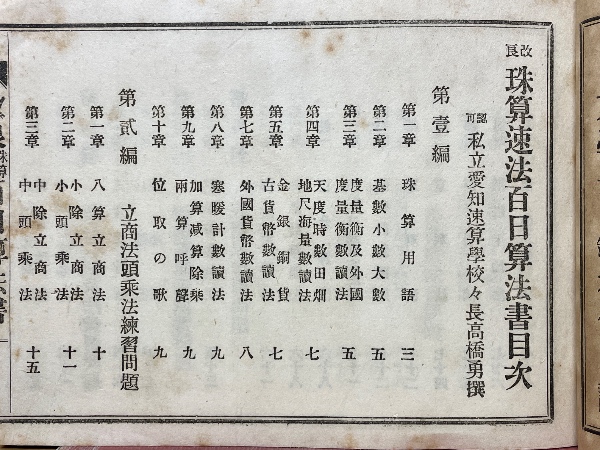 改良
珠算速法百日算法書目次
認可
私立愛知速算學校々長高橋勇撰
第壹編
第一章 珠算用語 三
第二章 基數小數大數 五
第三章 度量衡及外國度量衡數讀法 五
第四章 天度時數田畑地尺海量數讀法 七
第五章 金銀銅貨古貨幣數讀法 七
第七章 外國貨幣數讀法 八
第八章 寒暖計數讀法 九
第九章 加算减算除乘兩算呼聲 九
第十章 位取の歌 九
第貳編 立商法頭乘法練習問題
第一章 八算立商法 十
第二章 小除立商法小頭乘法 十一
第三章 中除立商法中頭乘法 十五